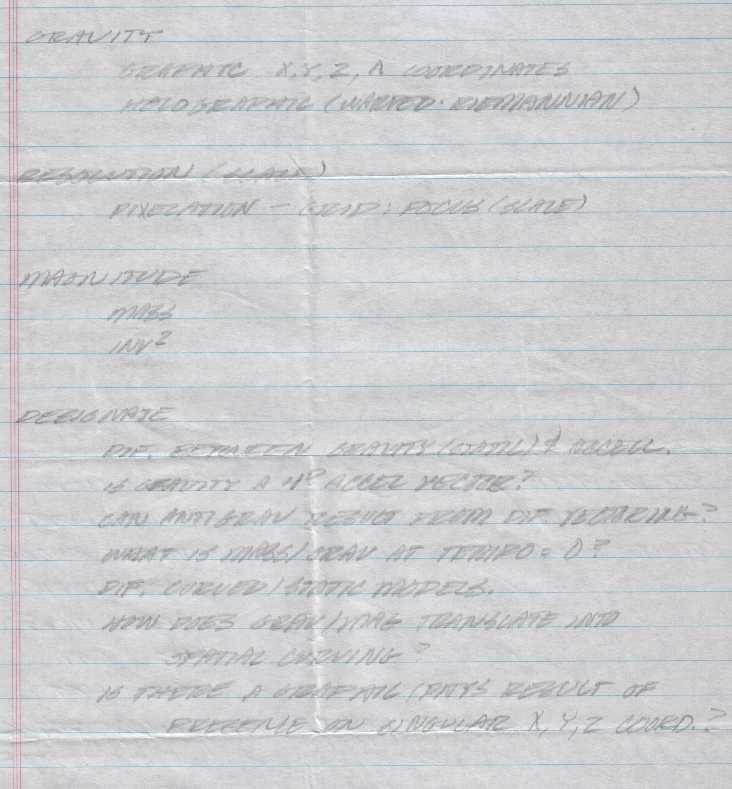 GRAVITY
GRAPHIC X, Y, Z, Λ COORDINATES
HOLOGRAPHIC (WARPED: RIEMANNIAN)
RESOLUTION (SCALE)
PIXELATION - GRID: FOCUS (SCALE)
MAGNITUDE
MASS
INV²
DESIGNATE
DIF. BETWEEN GRAVITY (STATIC) & ACCELL.
IS GRAVITY A ACCEL VECTOR?
CAN ANTIGRAV RESULT FROM DIF. VECTORING?
WHAT IS MASS/GRAV AT = 0?
DIF. CURVED/STATIC MODELS.
HOW DOES GRAV/MAG TRANSLATE INTO
SPATIAL CURVING?
IS THERE A GRAPHIC/PHYS RESULT OF
ON SINGULAR X, Y, Z COORD.?